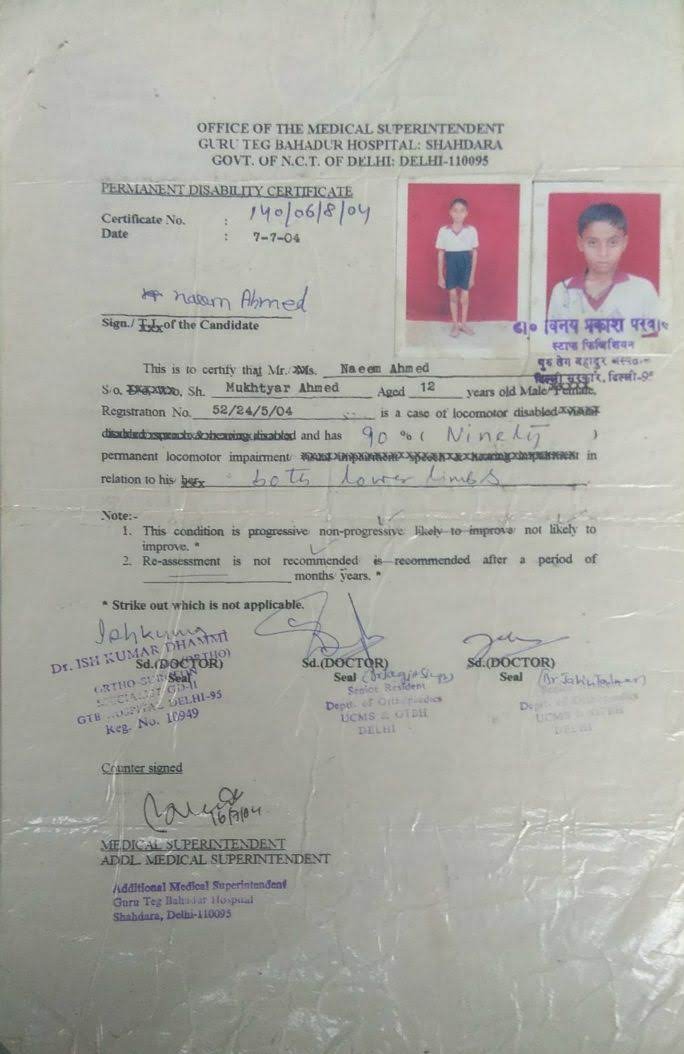 OFFICE OF THE MEDICAL SUPERINTENDENT
GURU TEG BAHADUR HOSPITAL: SHAHDARA
GOVT. OF N.C.T. OF DELHI: DELHI-110095
PERMANENT DISABILITY CERTIFICATE
Certificate No. : 140/06/8/04
Date : 7-7-04
naeem Ahmed
Sign./ T.I. of the Candidate
डा० विनय प्रकाश
स्टाफ फिजिशियन
गुरु तेग बहादुर
दिल्ली सरकार, दिल्ली-95
This is to certify that Mr./ Ms. Naeem Ahmed
S/o. Sh. Mukhtyar Ahmed Aged 12 years old Male/ Female,
Registration No. 52/24/5/04 is a case of locomotor disabled
and has 90 % ( Ninety )
permanent locomotor impairment/ in
relation to his her both lower limbs
Note:-
1. This condition is progressive non-progressive likely to improve not likely to
improve. *
2. Re-assessment is not recommended is recommended after a period of
months/ years. *
* Strike out which is not applicable.
Ishkumar
Dr. ISH KUMAR DHAMMI
(ORTHO)
Sd.(DOCTOR) Sd.(DOCTOR) Sd.(DOCTOR)
Seal Seal Seal
ORTHO-SURGEON
SPECIALIST GD-II
GTB HOSPITAL DELHI-95
Reg. No. 10949
Senior Resident
Deptt. of Orthopaedics
UCMS & GTBH
DELHI
Deptt. of Orthopaedics
UCMS & GTBH
DELHI
Counter signed
16/7/04
MEDICAL SUPERINTENDENT
ADDL. MEDICAL SUPERINTENDENT
Additional Medical Superintendent
Guru Teg Bahadur Hospital
Shahdara, Delhi-110095